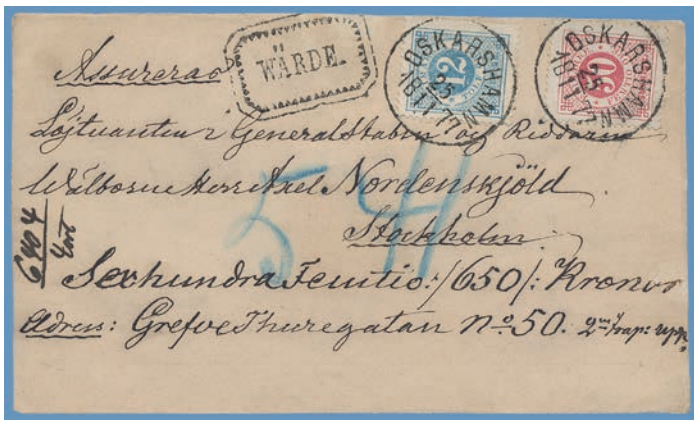 WÄRDE.
OSKARSHAMN
25
1877
12
OSKARSHAMN
25
1877
Assurerad
Löjtnanten i Generalstaben og Riddaren
Wälborne Herr Axel Nordenskjöld
Stockholm.
5 4
6404
Sexhundra Femtio:/650/: Kronor
Adress: Grefve Thuregatan No 50. 2 trap: upp.